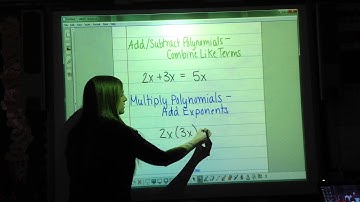 Add/Subtract Polynomials -
Combine Like Terms
2x + 3x = 5x
Multiply Polynomials -
Add Exponents
2x(3x)